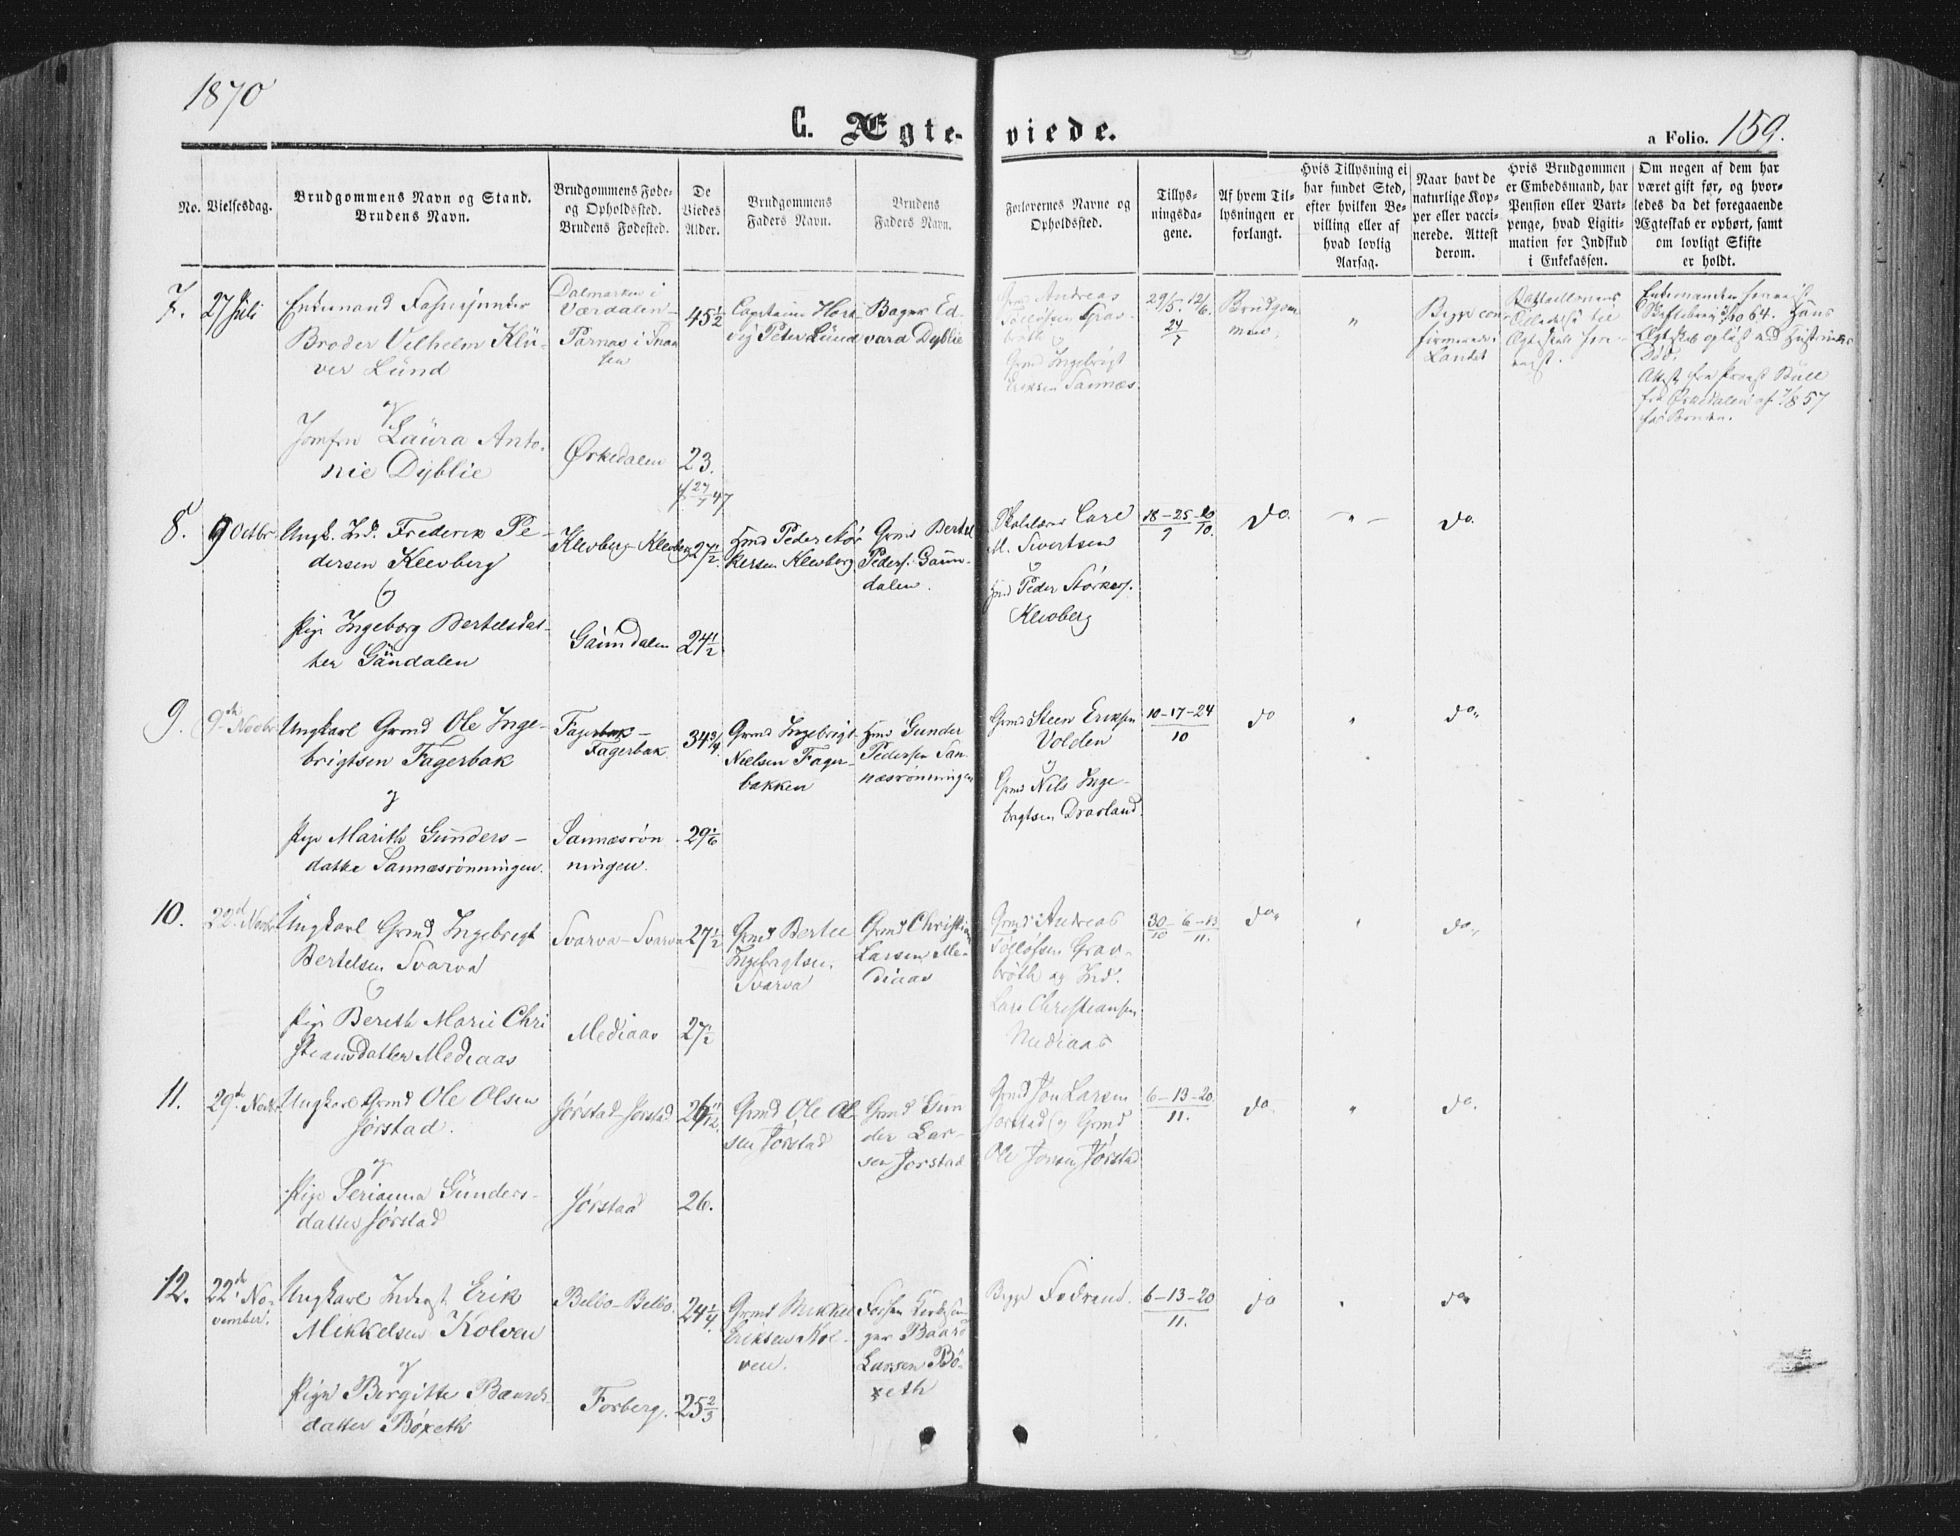 1870
C. Ægte-viede.
a Folio. 159.
No.
Vielsesdag.
Brudgommens Navn og Stand.
Brudens Navn.
Brudgommens Føde-
og Opholdssted.
Brudens Fødested.
De
Viedes
Alder.
Brudgommens
Faders Navn.
Brudens
Faders Navn.
Forlovernes Navne og
Opholdssted.
Tillys-
ningsda-
gene.
Af hvem Til-
lysningen er
forlangt.
Hvis Tillysning ei
har fundet Sted,
efter hvilken Be-
villing eller af
hvad lovlig
Aarsag.
Naar havt de
naturlige Kop-
per eller vacci-
nerede. Attest
derom.
Hvis Brudgommen
er Embedsmand, har
Pension eller Vart-
penge, hvad Ligiti-
mation for Indskud
i Enkekassen.
Om nogen af dem har
været gift før, og hvor-
ledes da det foregaaende
Ægteskab er ophørt, samt
om lovligt Skifte
er holdt.
7.
27 Juli
Enkemand Fasnejunker
Broder Vilhelm Klü-
ver Lünd
og
Jomfru Laura Anto-
nie Dyblie
Dalmarken i
Værdalen-
Parnas i Snaa
sen
Ørkedalen
45 1/2
23.
f. 27/7 47
Capitaine Hart
vig Peter Lünd
Bager Ed
vard Dyblie
Grmd Andreas
Tolløfsen Grav-
brøth
og
Grmd Ingebrigt
Eriksen Sannæs.
29/5. 12/6.
24/7
Brudgom
men,
"
Begge con
firmerede i
Landet
8.
9 Octbr.
Ungk. Ind. Frederik Pe-
dersen Klevberg
og
Pige Ingeborg Bertelsdat-
ter Gaundalen
Klevberg-Klevberg
Gaundalen
27 1/2
24 1/2
Hmd Peder Stør
kersen Klevberg
Grmd Bertel
Peders. Gaun-
dalen.
Skolelærer Carl
M. Sivertsen
og
Hmd Peder Størkers.
Klevberg
18-25/9 - 10/10.
Do.
- " -
do.
9.
9de Novbr
Ungkarl Grmd Ole Inge-
brigtsen Fagerbak
og
Pige Marith Gunders-
datter Sannæsrønningen.
Fagerbak-
Fagerbak
Sannæsrøn
ningen.
34 3/4
29 1/6
Grmd Ingebrigt
Nielsen Fager-
bakken
Hmd Gunder
Pedersen San
næsrønningen
Grmd Steen Eriksen
Volden
og
Grmd Nils Inge-
brigtsen Dravland.
10-17-24
10
do
"
do"
10.
22de Novbr
Ungkarl Grmd Ingebrigt
Bertelsen Svarva
og
Pige Bereth Marie Chri
stiansdatter Mediaas
Svarva-Svarva
Mediaas
27 1/2
27 1/2
Grmd Bertel
Ingebrigtsen
Svarva
Grmd Christian
Larsen Me-
diaas
Grmd Andreas
Tolløfsen Grav-
brøth og Ind.
Lars Christiansen
Mediaas
30/10 - 6-13/11.
do"
"
do"
11.
29de Novbr
Ungkarl Grmd Ole Olsen
Jørstad.
og
Pige Perianna Gunders-
datter Jørstad
Jørstad-Jørstad
Jørstad
26 11/12.
26.
Grmd Ole Ol
sen Jørstad
Grmd Gun
der Lar-
sen Jørstad
Grmd Jon Larsen
Jørstad og Grmd
Ole Jonsen Jørstad
6-13-20
11.
do
"
do.
12.
22de No-
vember.
Ungkarl Inderst Erik
Mikkelsen Kolven
og
Pige Birgitte Baards
datter Bøxeth
Belbo-Belbo.
Forberg.
24 1/4.
25 2/3
Grmd Mikkel
Eriksen Kol-
ven.
Baard
Larsen Bø-
xeth
Begge Fædrene.
6-13-20
11.
do
"
do"